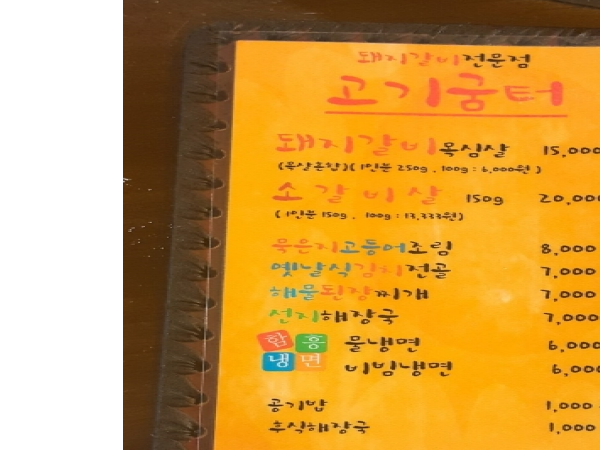 돼지갈비전문점
고기굼터
돼지갈비목심살 15,000
(목살혼합)(1인분 250g . 100g : 6,000원)
소갈비살 150g 20,00
(1인분 150g . 100g : 13,333원)
묵은지고등어조림 8,000
옛날식김치전골 7,000
해물된장찌개 7,000
선지해장국 7,000
함흥냉면 물냉면 6,000
비빔냉면 6,000
공기밥 1,000
후식해장국 1,000